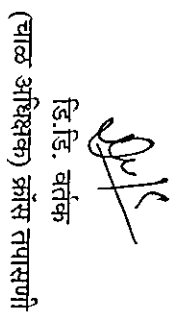 डि.डि. वर्तक
(चाळ अधिक्षक) क्रॉस तपासणी